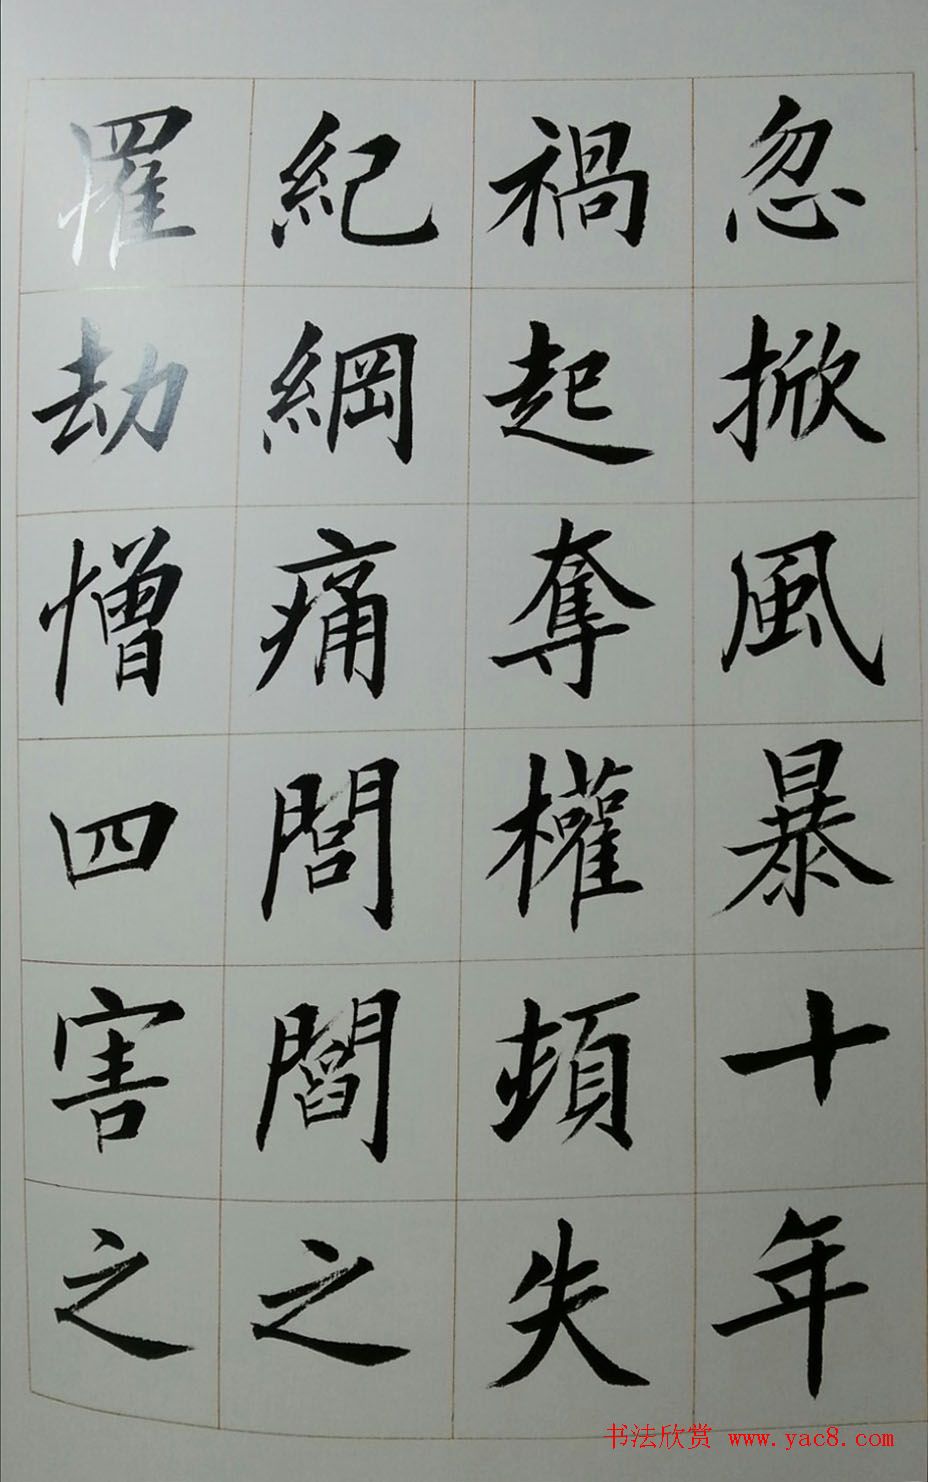 忽掀風暴十年
禍起奪權頓失
紀綱痛閭閻之
罹劫憎四害之
书法欣赏 www.yac8.com